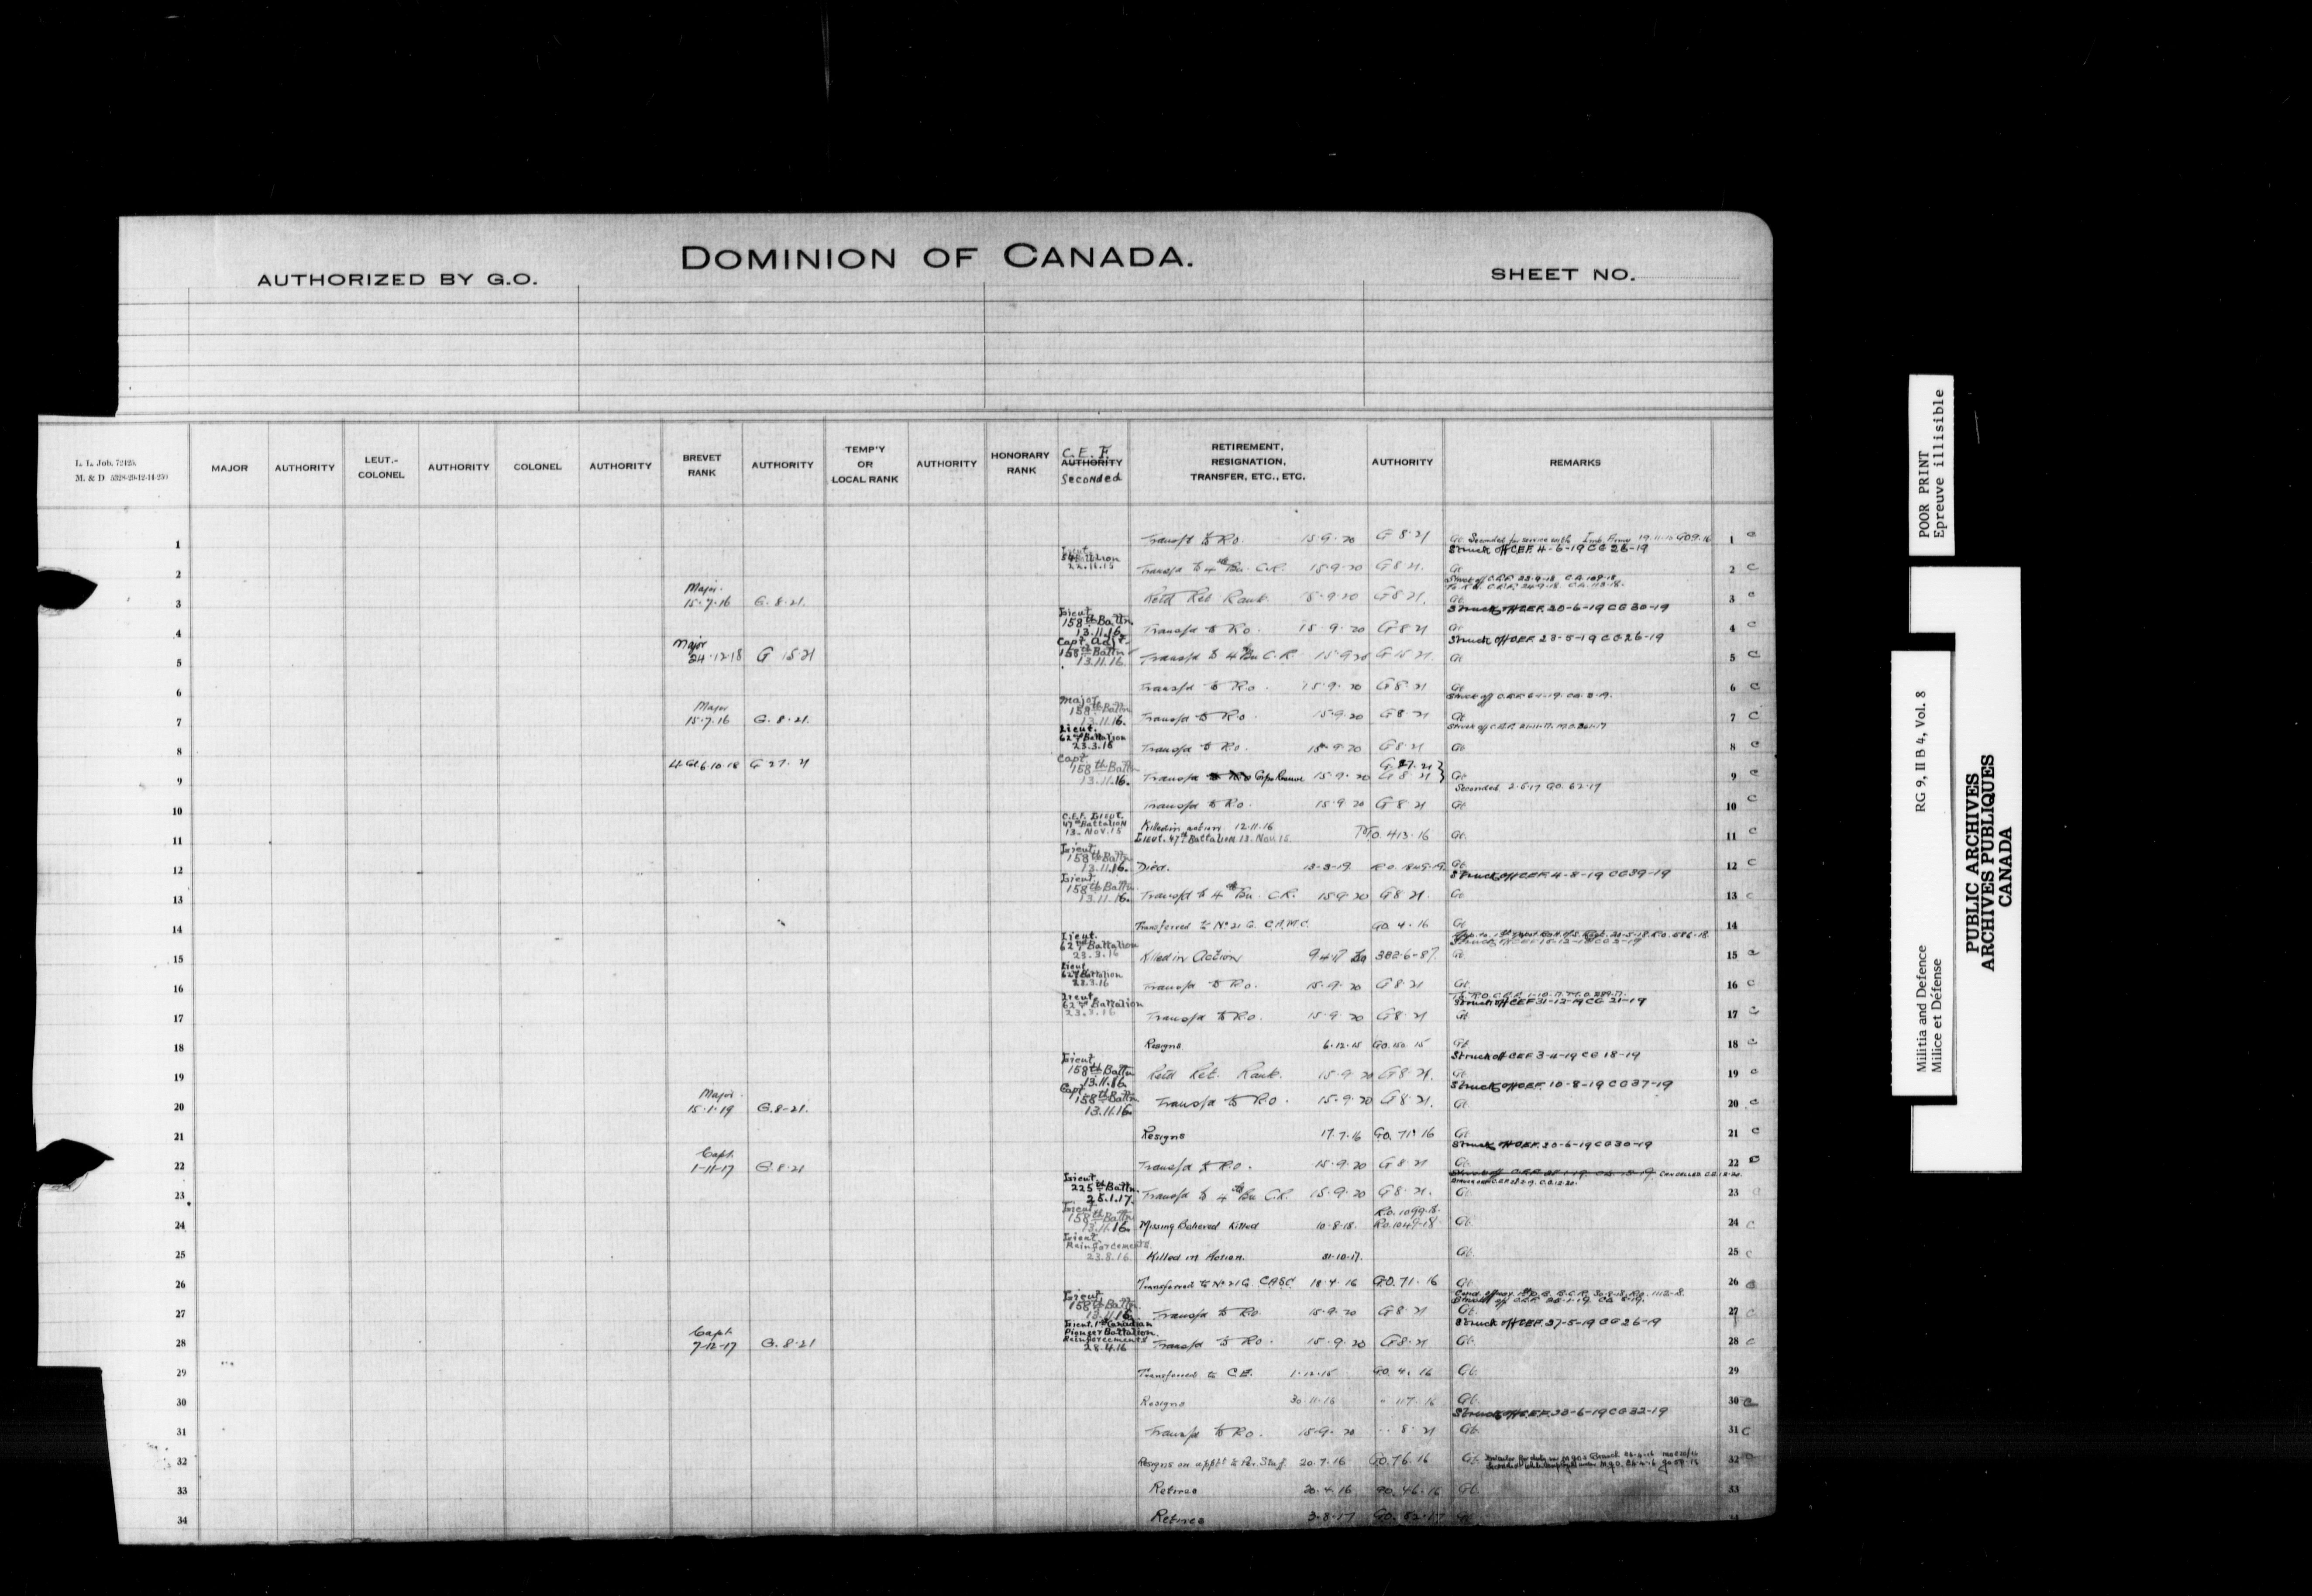 DOMINION OF CANADA.
AUTHORIZED BY G.O.
SHEET NO.
L. L. Job. 72125.
M. & D
MAJOR
AUTHORITY
LEUT.-
COLONEL
AUTHORITY
COLONEL
AUTHORITY
BREVET
RANK
AUTHORITY
TEMP'Y
OR
LOCAL RANK
AUTHORITY
HONORARY
RANK
C.E.F.
AUTHORITY
Seconded
RETIREMENT,
RESIGNATION,
TRANSFER, ETC., ETC.
AUTHORITY
REMARKS
1 Transfd to R.O. 15.9.20 G 8.21 Gt. Seconded for service with Imp. Army 1 c
Struck off CEF 4-6-19 CG 26-19
22.11.15
2 Transfd to 4th Bn. C.R. 15.9.20 G 8 21. Gt 2 c
Major.
3 15.7.16 G. 8.21. Retd Ret. Rank. 15.9.20 G 8 21. Gt 3 c
Struck off CEF 20-6-19 CG 30-19
Lieut.
158th Battn.
13.11.16.
4 Transfd to R.O. 15.9.20 G 8 21 Gt 4 c
Struck off CEF 23-5-19 CG 26-19
Major
24.12.18 G 15 21
Capt. Adjt.
158th Battn
13.11.16.
5 Transfd to 4th Bn C.R. 15.9.20 G 15 21. Gt 5 c
6 Transfd to R.O. 15.9.20 G 8.21 Gt 6 c
Major
158th Battn
13.11.16.
Major
7 15.7.16 G. 8.21. Transfd to R.O. 15.9.20 G 8.21 Gt 7 c
Lieut.
62nd Battalion
23.3.16
8 Transfd to R.O. 15.9.20 G 8.21 Gt 8 c
6.10.18 G 27. 21
Capt.
158th Battn
13.11.16.
G. 27. 21
9 Transfd to R.O. Corps Reserve 15.9.20 G 8.21 Gt 9 c
Seconded 2.5.17 GO. 62.17
10 Transfd to R.O. 15.9.20 G 8.21 Gt 10 c
C.E.F. Lieut.
47th Battalion
13. Nov. 15
11 Killed in action 12.11.16 413.16 Gt. 11 c
Lieut. 47th Battalion 13. Nov. 15.
Lieut.
158th Battn
13.11.16.
12 Died. 13-3-19. Gt 12 c
Struck off CEF 4-8-19 CG 39-19
Lieut.
158th Battn.
13.11.16.
13 Transfd to 4th Bn. C.R. 15.9.20 G 8 21. Gt 13 c
14 Transferred to No 21 G. C.A.M.C. GO. 4.16 Gt 14
Lieut.
62nd Battalion
23.3.16
15 Killed in Action 9.4.17 382-6-87. Gt 15 c
Lieut.
62nd Battalion
23.3.16
16 Transfd to R.O. 15.9.20 G 8.21 Gt 16 c
Struck off CEF 31-12-19 CG 21-19
Lieut.
62nd Battalion
23.3.16
17 Transfd to R.O. 15.9.20 G 8.21 Gt 17 c
18 Resigns 6.12.15 GO. 150. 15 Gt 18 c
Struck off CEF 3-4-19 CG 18-19
Lieut.
158th Battn
13.11.16.
19 Retd Ret. Rank. 15.9.20 G 8.21. Gt 19 c
Struck off CEF. 10-8-19 CG 37-19
Major.
20 15.1.19 G.8-21.
Capt.
158th Battn
13.11.16.
Transfd to R.O. 15.9.20 G 8.21. Gt 20 c
21 Resigns 17.7.16 GO. 71.16 Gt 21 c
Struck off CEF. 20-6-19 CG 30-19
Capt.
22 1-11-17 G.8.21 Transfd to R.O. 15.9.20 G 8.21 Gt 22 c
Lieut.
225th Battn.
25.1.17.
23 Transfd to 4th Bn C.R. 15.9.20 G 8.21. Gt 23 c
Lieut.
158th Battn
13.11.16.
R.O. 1099.18.
24 Missing Believed Killed 10.8.18. R.O. 1049-18 Gt. 24 c
Lieut.
Reinforcements.
23.8.16
25 Killed in Action. 31.10.17. Gt. 25 c
26 Transferred to No 21 G. CASC. 18.4.16 G.O. 71.16 Gt 26 c
Lieut.
158th Battn.
13.11.16.
27 Transfd to R.O. 15.9.20 G 8.21 Gt. 27 c
Struck off CEF. 27-5-19 CG 26-19
Lieut. 1st Canadian
Pioneer Battalion.
Reinforcements
28.4.16
Capt.
28 7-12-17 G. 8.21 Transfd to R.O. 15.9.20 G 8.21 Gt. 28 c
29 Transferred to C.E. 1.12.15 GO. 4.16 Gt. 29
30 Resigns 30.11.16 " 117.16 Gt. 30 c
Struck off CEF. 23-6-19 CG 32-19
31 Transfd to R.O. 15.9.20 8.21 Gt. 31 c
32 Resigns on appt. to Per. Staff 20.7.16 GO. 76.16 Gt. 32
33 Retires 20.4.16 GO. 46.16 Gt. 33
34 Retires 3.8.17 GO. 82.17
POOR PRINT
Epreuve illisible
RG 9, II B 4, Vol. 8
Militia and Defence
Milice et Défense
PUBLIC ARCHIVES
ARCHIVES PUBLIQUES
CANADA